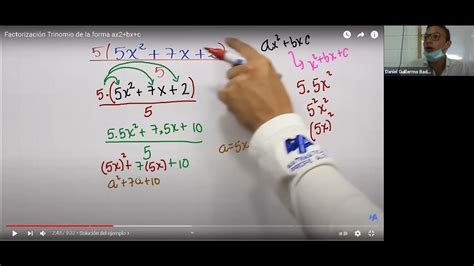 Factorización Trinomio de la forma ax2+bx+c
5(5x²+7x+
5
5.(5x²+7x+2)
5
5.5x²+7.5x+10
5
(5x)²+7(5x)+10
a²+7a+10
a=5x
ax²+bxc
x²+bx+c
5.5x²
5²x²
(5x)²
Solución del ejemplo >